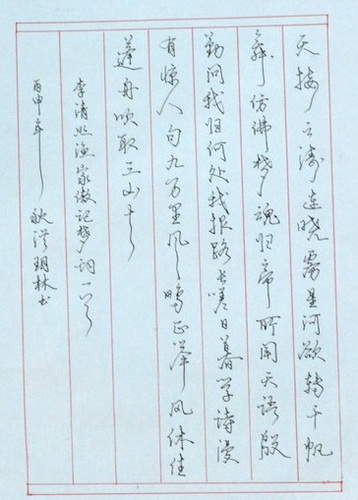 天接云涛连晓雾星河欲转千帆
舞仿佛梦魂归帝所闻天语殷
勤问我归何处我报路长嗟日暮学诗漫
有惊人句九万里风鹏正举风休住
蓬舟吹取三山去
李清照渔家傲记梦词一首
丙申年秋洪玥林书